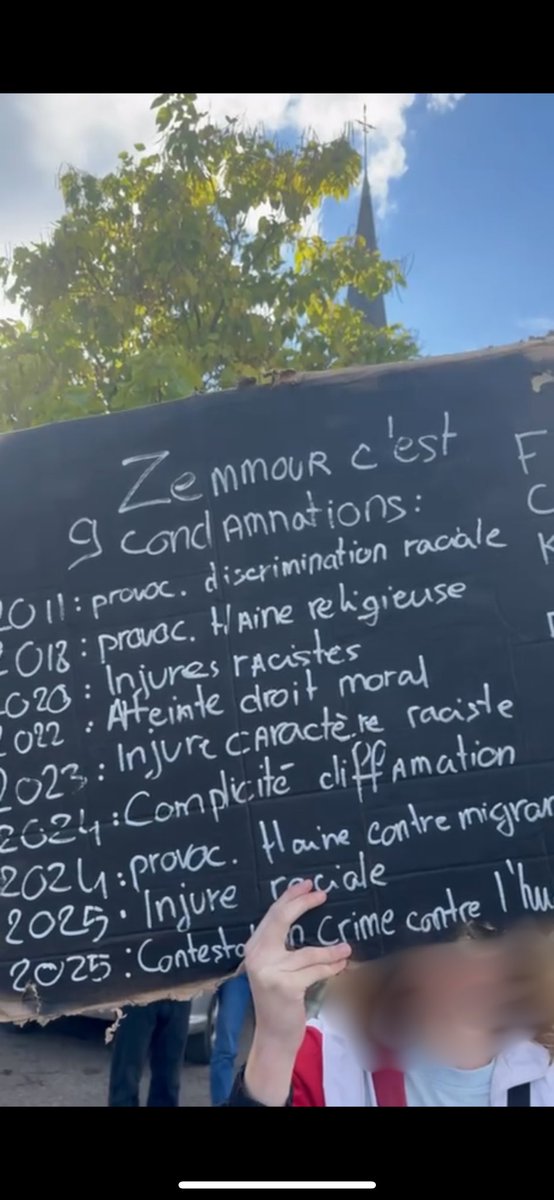 Zemmour c'est
9 condamnations:
2011: provoc. discrimination raciale
2018: provoc. Haine religieuse
2020: Injures racistes
2022: Atteinte droit moral
2023: Injure caractère raciste
2024: Complicité diffamation
2024: provoc. Haine contre migran
2025: Injure raciale
2025: Contesta n crime contre l'hu
F
C
K